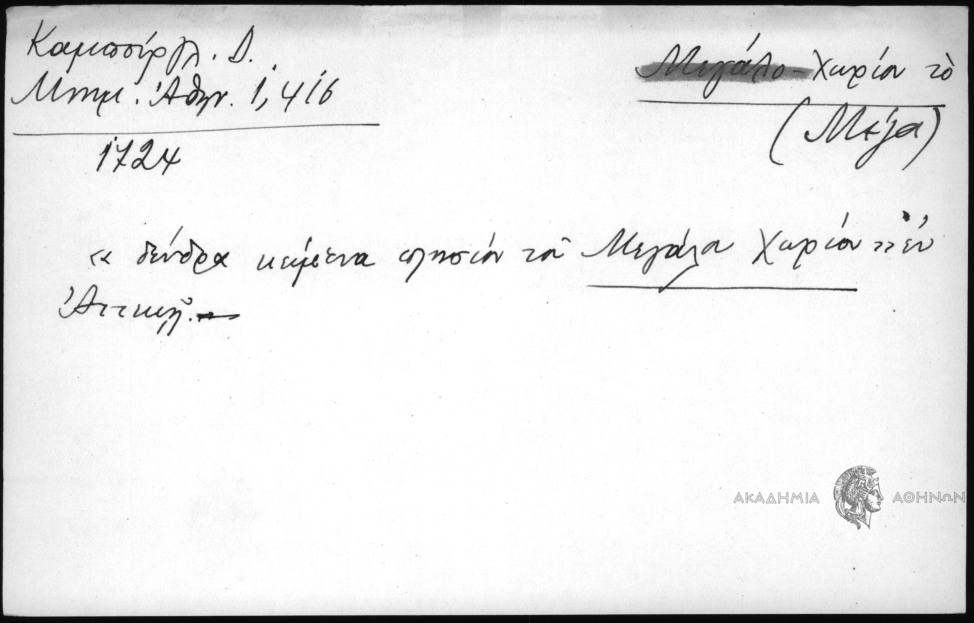 Καμπούργλ. Δ.
Μνημ. Ἀθην. 1, 416
1724
Μεγάλο-Χωρίον τὸ
(Μέγα)
" δένδρα κείμενα πλησίον τοῦ Μεγάλα Χωρίον" ἐν
Ἀττικῇ.
ΑΚΑΔΗΜΙΑ ΑΘΗΝΩΝ